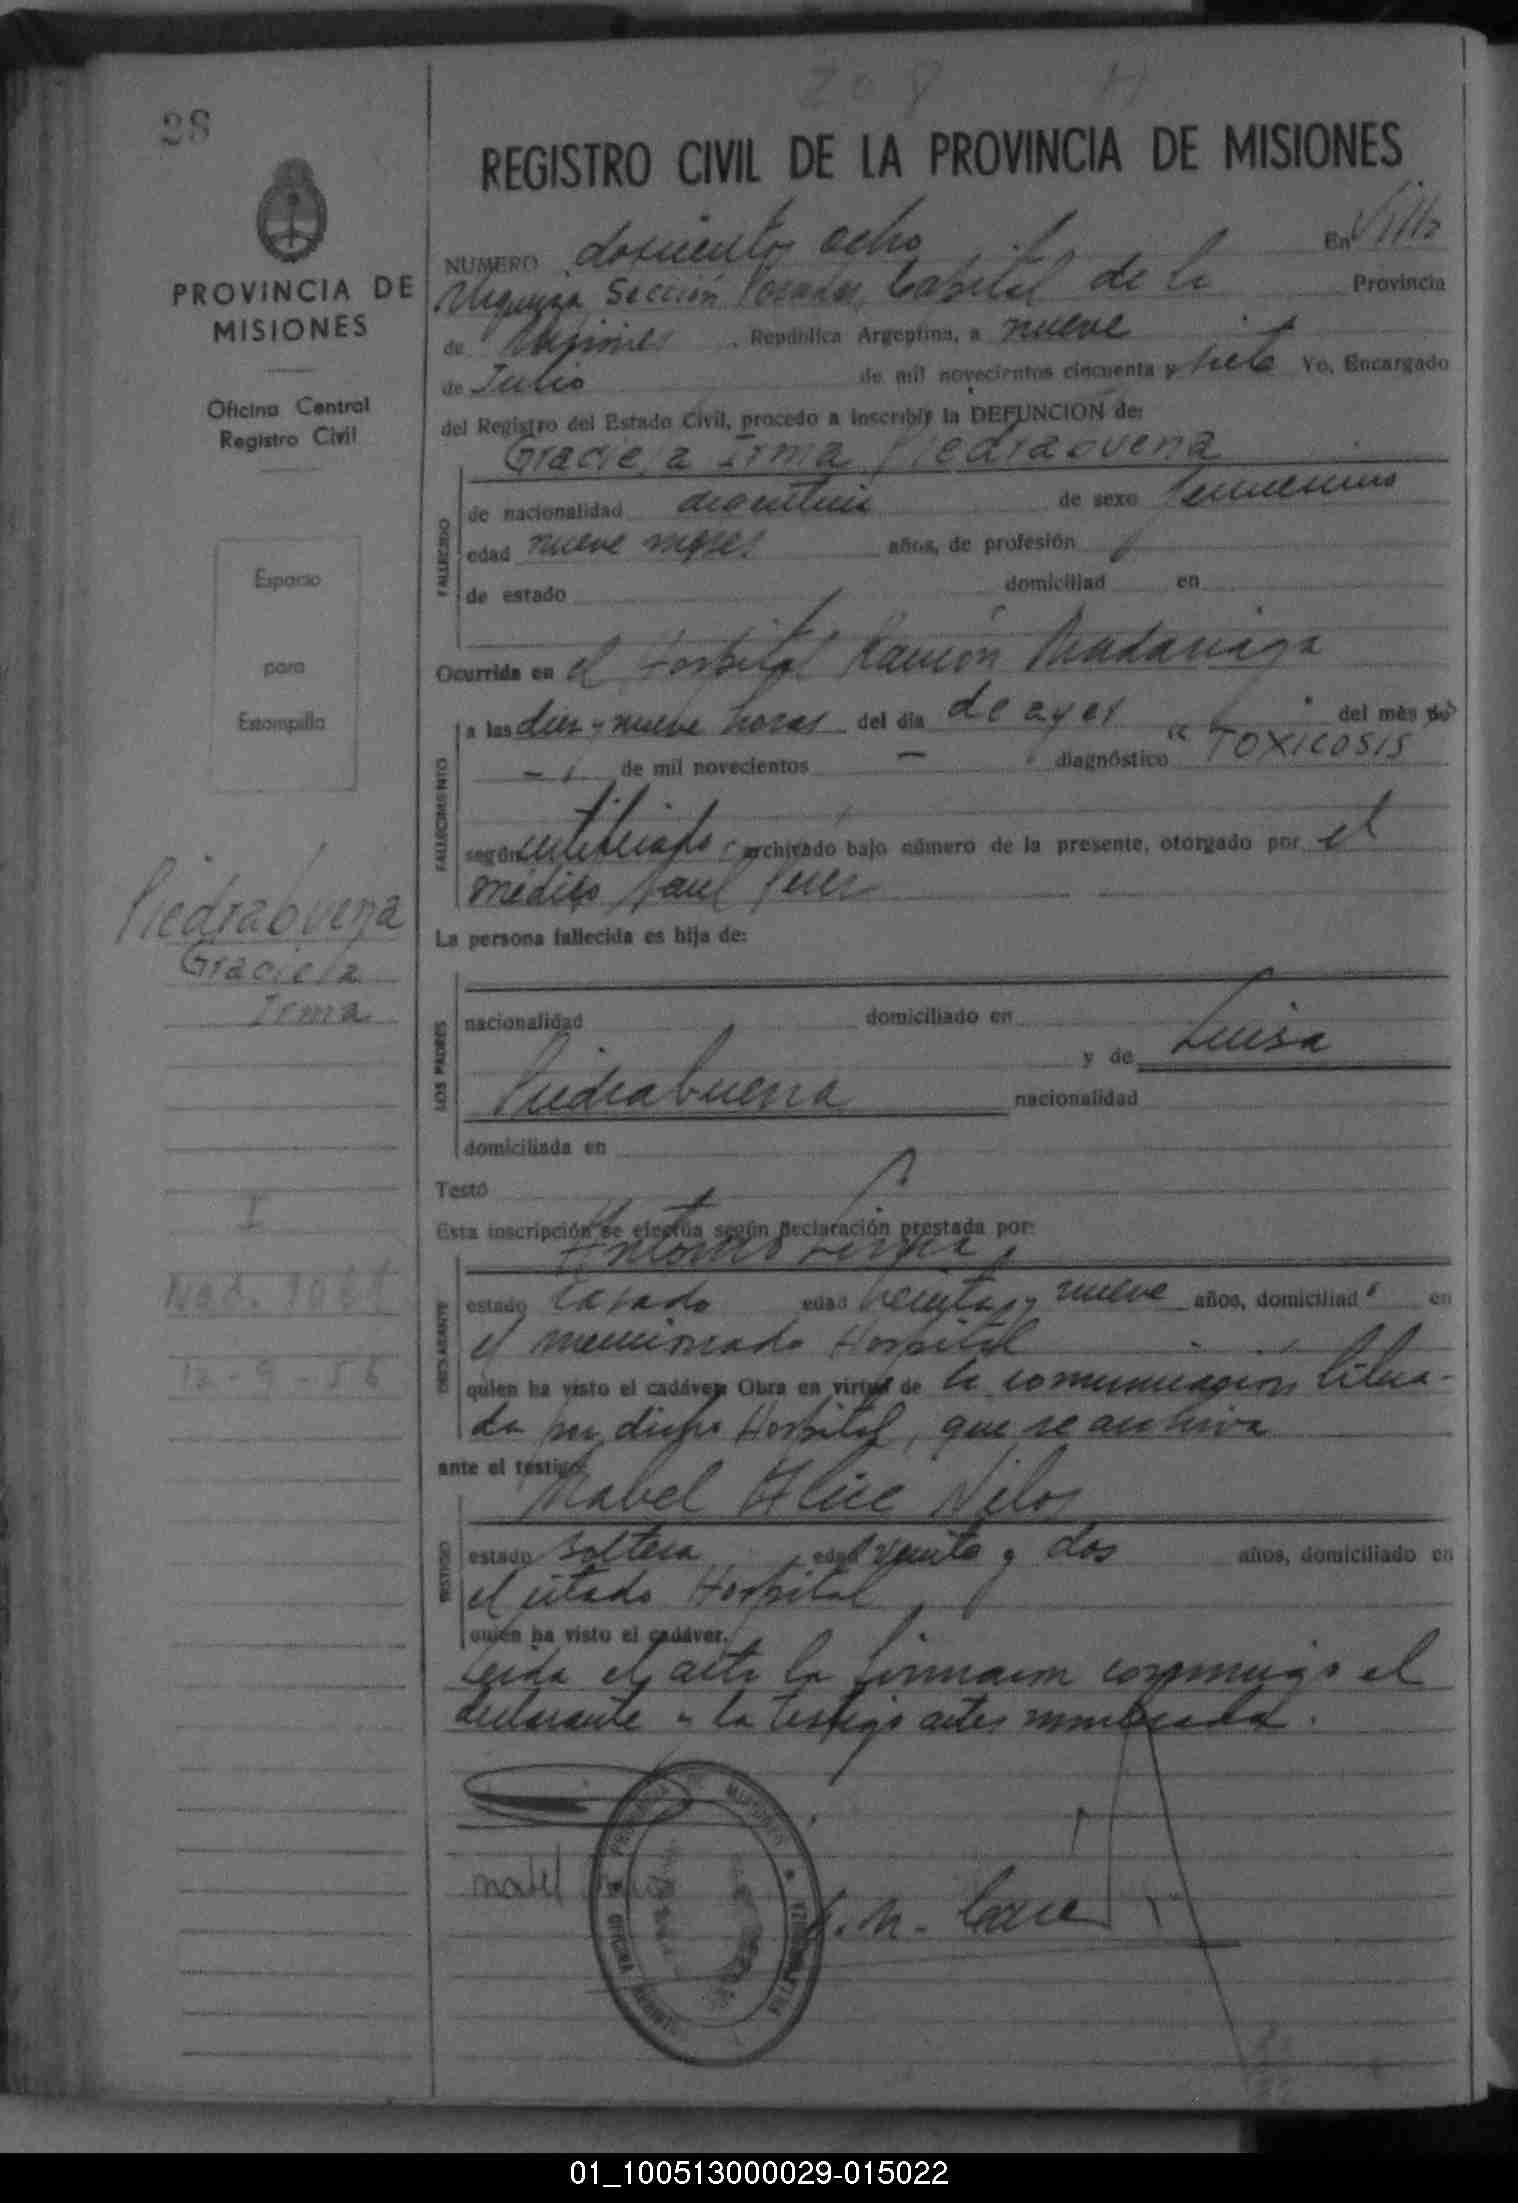 208 H
28
PROVINCIA DE
MISIONES
Oficina Central
Registro Civil
Espacio
para
Estampilla
Piedrabuena
Graciela
Irma
I
Nac. 1061
12-9-56
REGISTRO CIVIL DE LA PROVINCIA DE MISIONES
NUMERO doscientos ocho En Villa
Urquiza Sección Posadas Capital de la Provincia
de Misiones República Argentina, a nueve
de Julio de mil novecientos cincuenta y siete Yo, Encargado
del Registro del Estado Civil, procedo a inscribir la DEFUNCION de:
Graciela Irma Piedrabuena
FALLECIDO
de nacionalidad argentina de sexo femenino
edad nueve meses años, de profesión
de estado domiciliad en
Ocurrida en el Hospital Ramón Madariaga
FALLECIMIENTO
a las diez y nueve horas del día de ayer del mes de
- de mil novecientos - diagnóstico "TOXICOSIS
según certificado archivado bajo número de la presente, otorgado por el
médico Raul Perez
La persona fallecida es hija de:
LOS PADRES
nacionalidad domiciliado en
y de Luisa
Piedrabuena nacionalidad
domiciliada en
Testó
Esta inscripción se efectúa según declaración prestada por:
Antonio
DECLARANTE
estado casado edad y nueve años, domiciliado en
el mencionado Hospital
quien ha visto el cadáver Obra en virtud de la comunicación
da por dicho Hospital, que se archiva
ante el testigo:
Mabel Alice
TESTIGO
estado soltera edad veinte y dos años, domiciliado en
el citado Hospital
quien ha visto el cadáver.
Leida el acta la firmaron conmigo el
declarante y la testigo antes nombrada.
PROVINCIA DE MISIONES
OFICINA
01_100513000029-015022